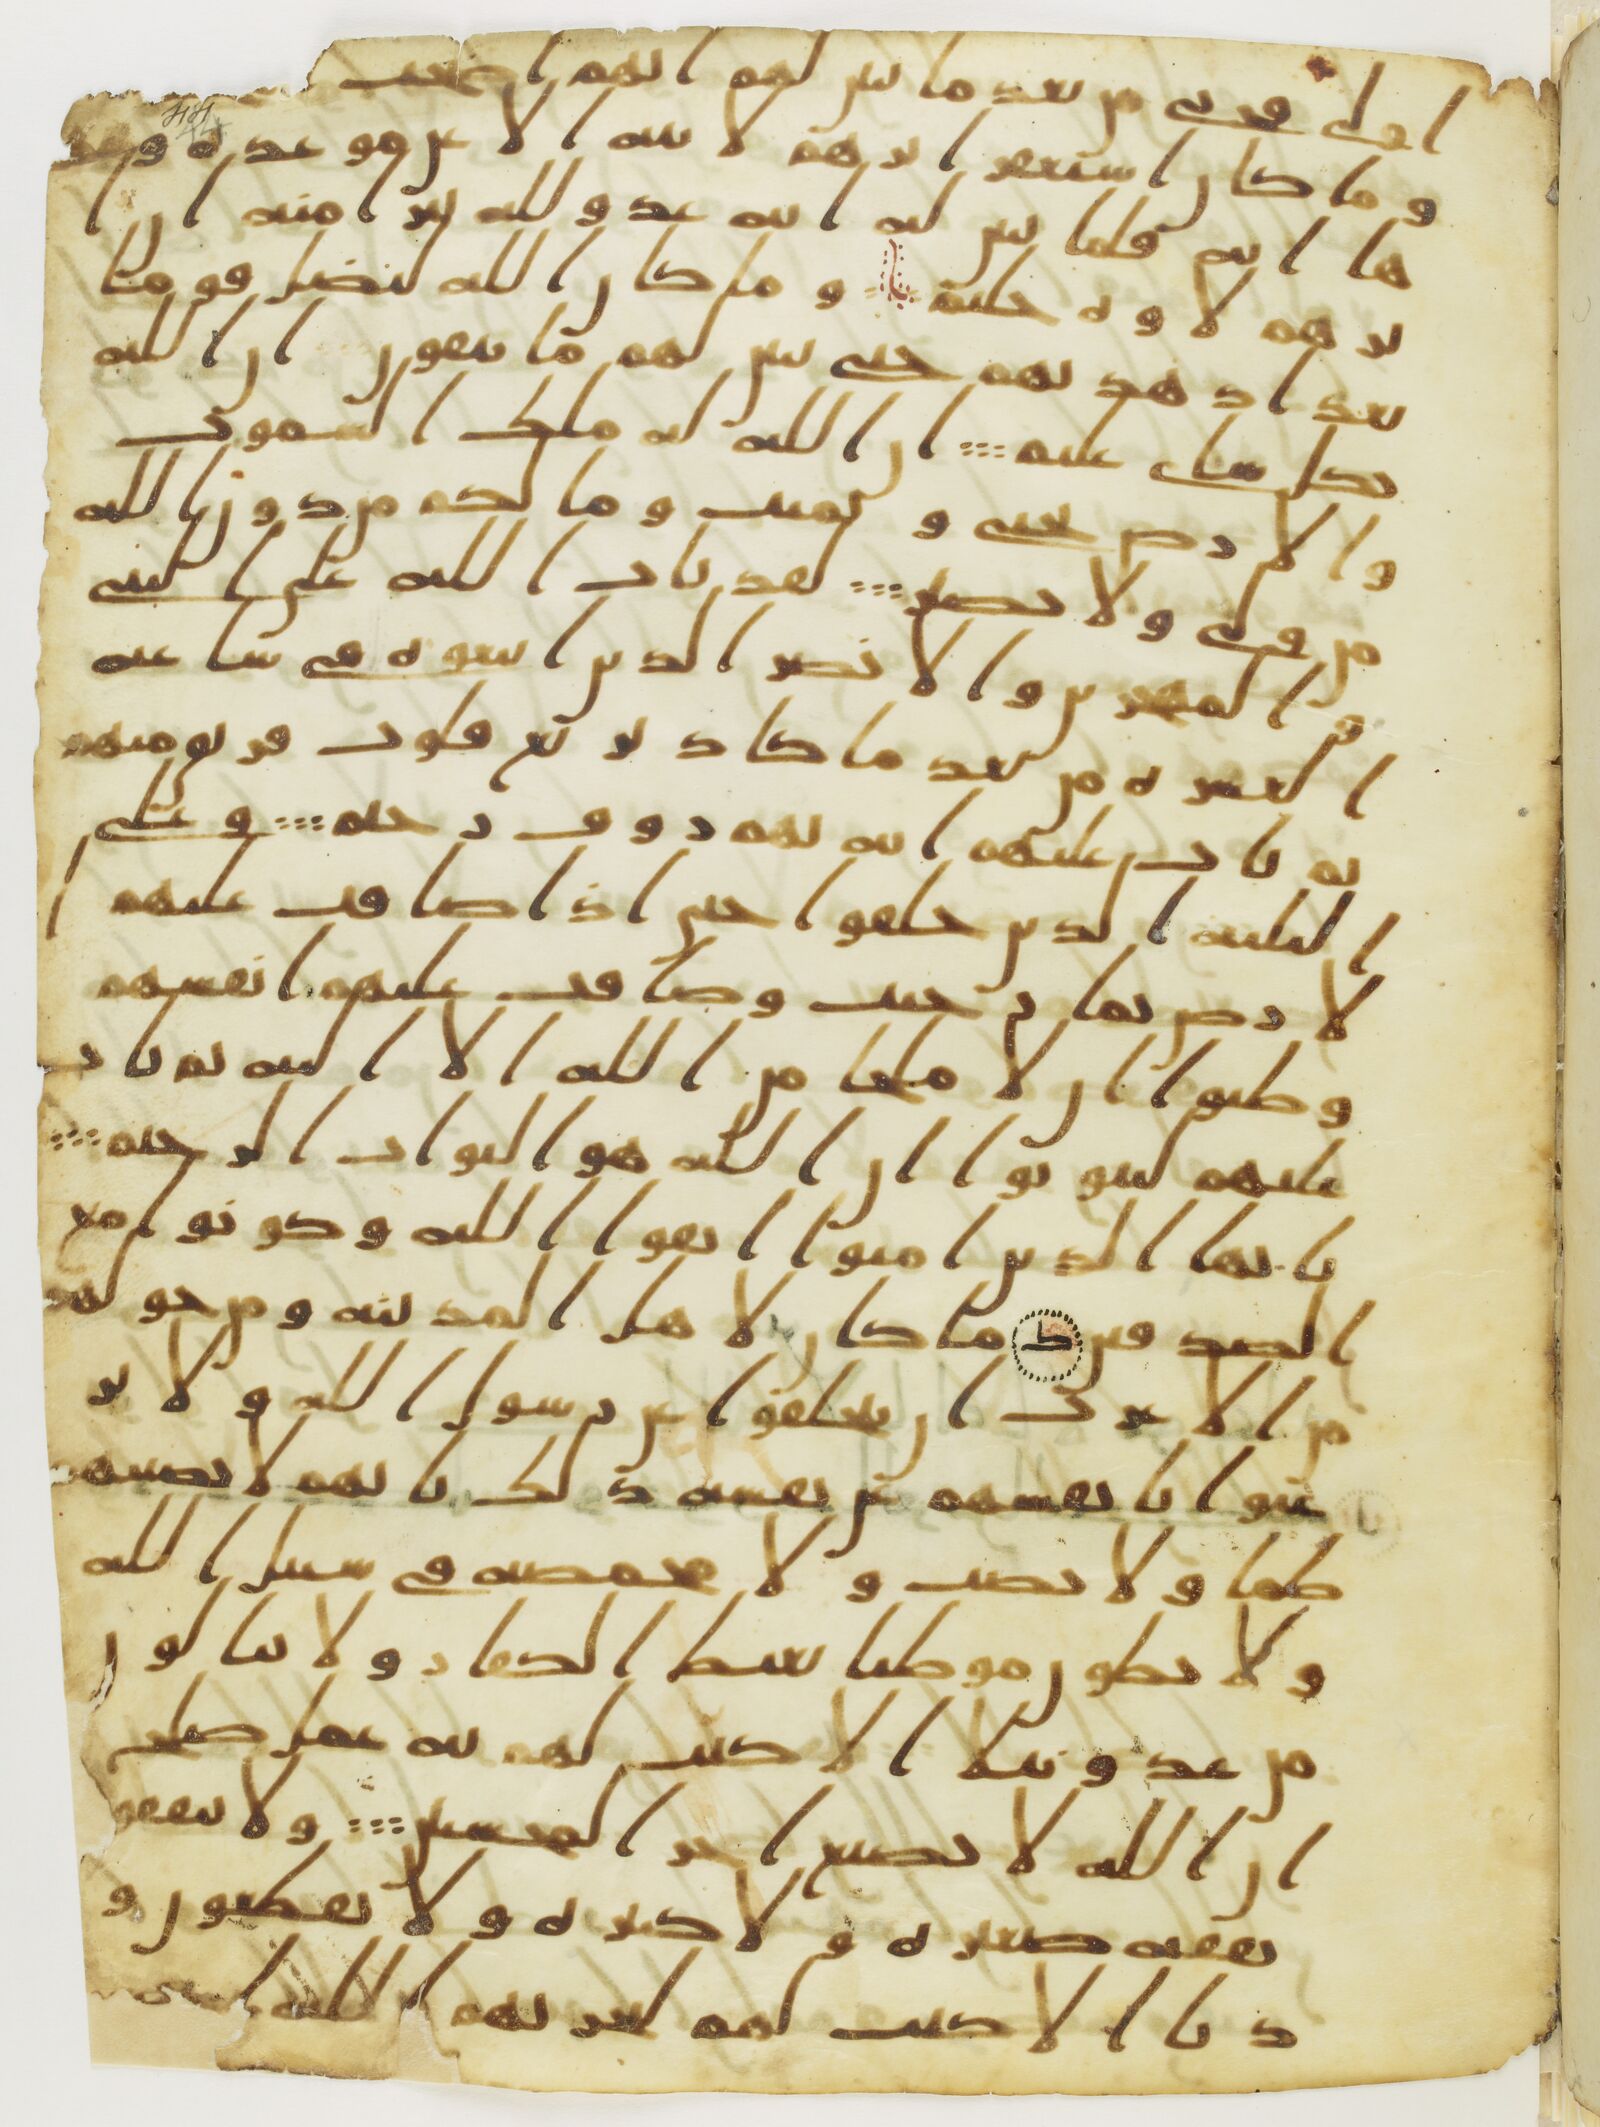 اولى قربى من بعد ما تبين لهم انهم اصحب
وما كان استغفر ابرهيم لابيه الا عن موعدة وعد
ها ايه فلما تبين له انه عدو لله تبرا منه ان ا
برهيم لاوه حليم وما كان الله ليضل قوما
بعد اذ هديهم حتى يبين لهم ما يتقون ان الله
بكل شى عليم ان الله له ملك السموت
والارض يحيى ويميت وما لكم من دون الله
من ولى ولا نصير لقد تاب الله على النبى
و المهجرين والانصر الذين اتبعوه فى ساعة
العسرة من بعد ما كاد يزيغ قلوب فريق منهم
ثم تاب عليهم انه بهم روف رحيم وعلى
الثلثة الذين خلفوا حتى اذا ضاقت عليهم ا
لارض بما رحبت وضاقت عليهم انفسهم
وظنوا ان لا ملجا من الله الا اليه ثم تاب
عليهم ليتوبوا ان الله هو التواب الرحيم
يايها الذين امنوا اتقوا الله وكونوا مع
الصدقين ما كان لاهل المدينة ومن حولهم
من الاعرب ان يتخلفوا عن رسول الله ولا ير
غبوا بانفسهم عن نفسه ذلك بانهم لا يصيبهم
ظما ولا نصب ولا مخمصة فى سبيل الله
ولا يطون موطيا يغيظ الكفار ولا ينالون
من عدو نيلا الا كتب لهم به عمل صلح
ان الله لا يضيع اجر المحسنين ولا ينفقو
نفقة صغيرة ولا كبيرة ولا يقطعون و
ديا الا كتب لهم ليجزيهم الله